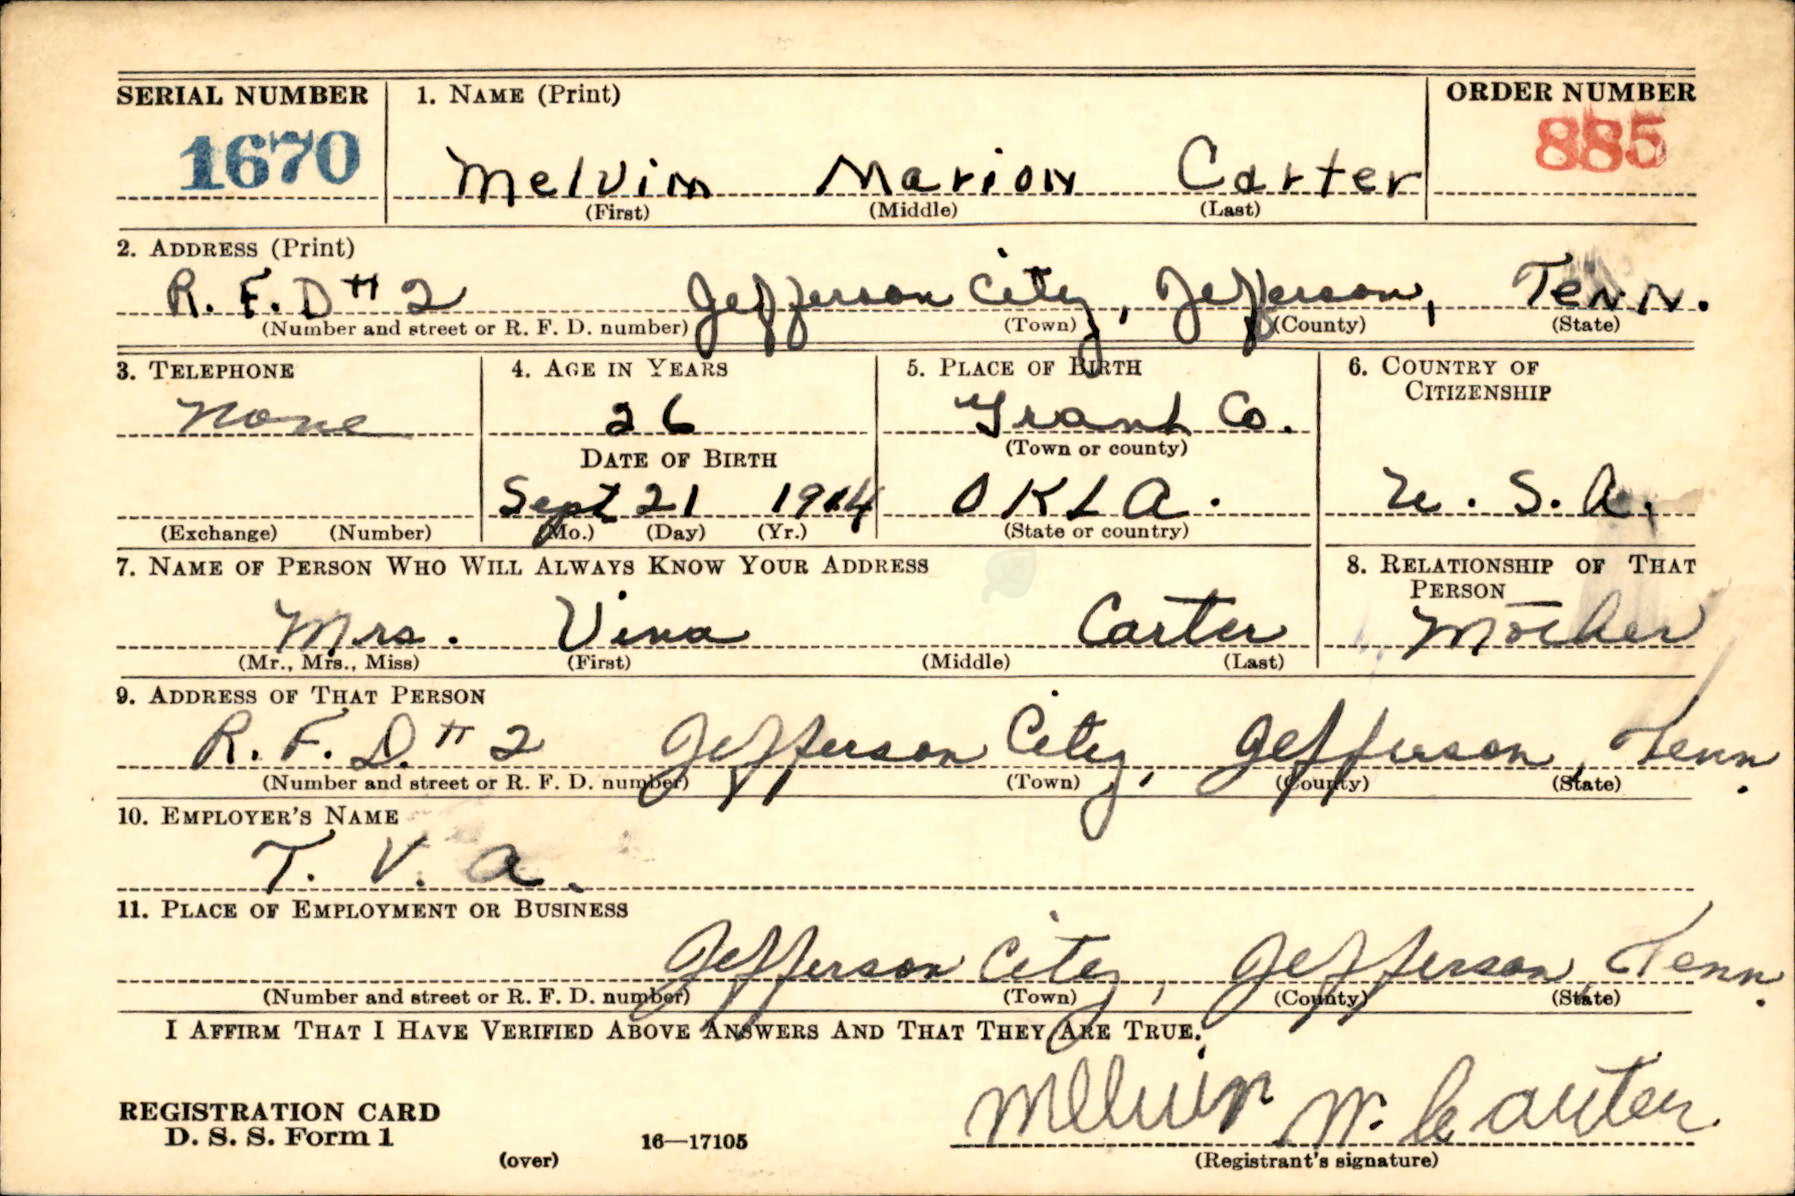 SERIAL NUMBER 1. NAME (Print) ORDER NUMBER
1670 Melvin Marion Carter 885
(First) (Middle) (Last)
2. ADDRESS (Print)
R. F. D # 2 Jefferson City, Jefferson, Tenn.
(Number and street or R. F. D. number) (Town) (County) (State)
3. TELEPHONE 4. AGE IN YEARS 5. PLACE OF BIRTH 6. COUNTRY OF CITIZENSHIP
None 26 Grant Co.
DATE OF BIRTH (Town or county)
Sept 21 1914 OKLA. U. S. A.
(Exchange) (Number) (Mo.) (Day) (Yr.) (State or country)
7. NAME OF PERSON WHO WILL ALWAYS KNOW YOUR ADDRESS 8. RELATIONSHIP OF THAT PERSON
Mrs. Vina Carter Mother
(Mr., Mrs., Miss) (First) (Middle) (Last)
9. ADDRESS OF THAT PERSON
R. F. D. # 2 Jefferson City, Jefferson, Tenn.
(Number and street or R. F. D. number) (Town) (County) (State)
10. EMPLOYER'S NAME
T. V. A.
11. PLACE OF EMPLOYMENT OR BUSINESS
Jefferson City, Jefferson, Tenn.
(Number and street or R. F. D. number) (Town) (County) (State)
I AFFIRM THAT I HAVE VERIFIED ABOVE ANSWERS AND THAT THEY ARE TRUE.
REGISTRATION CARD
D. S. S. Form 1 16—17105 Melvin M. Carter
(over) (Registrant's signature)